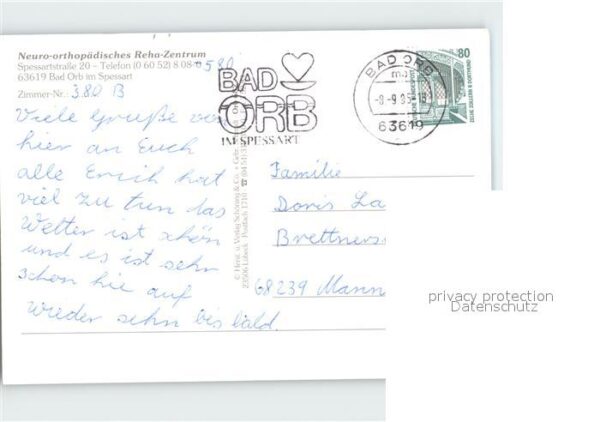 Neuro-orthopädisches Reha-Zentrum
Spessartstraße 20 – Telefon (0 60 52) 8 08-0580
63619 Bad Orb im Spessart
Zimmer-Nr.: 380 B
Viele Grüße von
hier an Euch
alle Erich hat
viel zu tun das
Wetter ist schön
und es ist sehr
schon hie auf
wieder sehn bis bald.
BAD
ORB
IM SPESSART
BAD ORB
-9.-9.95-18
63619
80
DEUTSCHE BUNDESPOST
ZECHE ZOLLERN II DORTMUND
Familie
Doris La
Brettners
68239 Mann
© Herst. u. Verlag Schöning & Co. + Gebr.
23506 Lübeck · Postfach 1710
privacy protection
Datenschutz